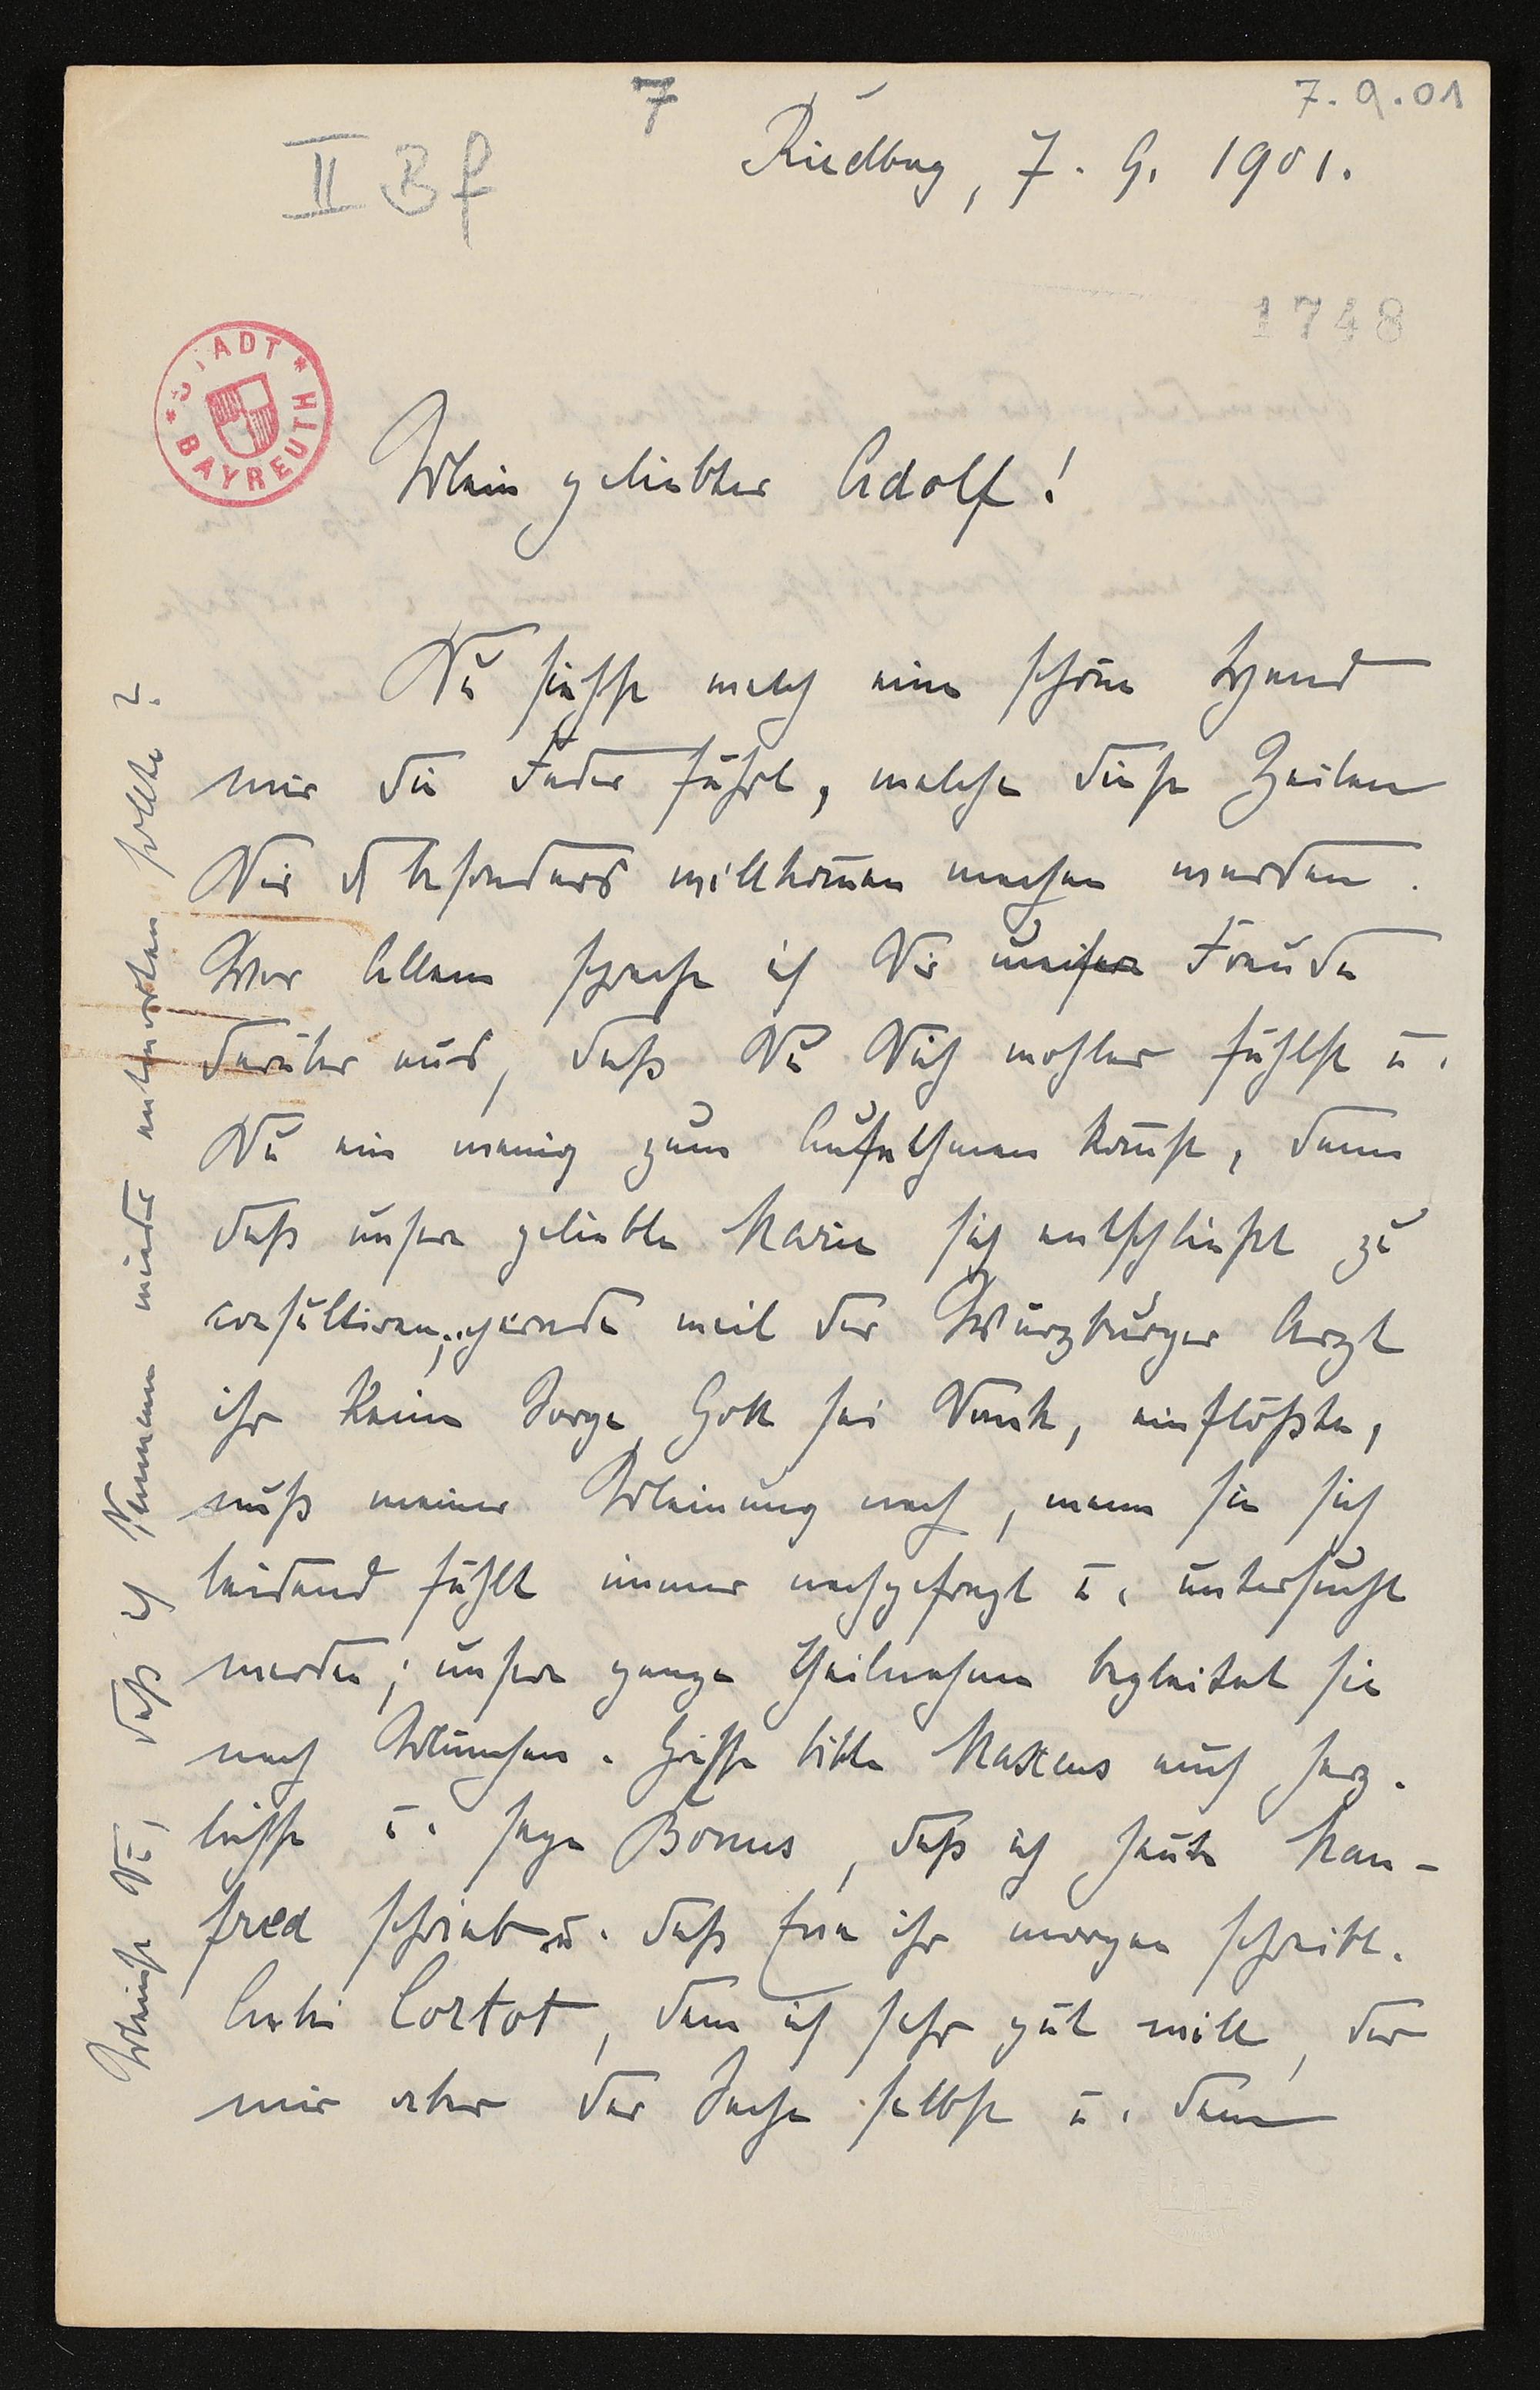 7
7.9.01
II Bf
Riedbug, 7. 9. 1901.
1748
STADT BAYREUTH
Mein geliebter Adolf!
Du siehst welch eine schöne Hand
mir die Feder führt, welche diese Zeilen
Dir besonders willkom̄en machen werden.
Vor Allem spreche ich Dir unsere Freude
darüber aus, daß Du Dich wohler fühlst u.
Du ein wenig zum Aufathmen kom̄st, dann
daß unsere geliebte Marie sich entschließt zu
consultiren; gerade weil der Würzburger Arzt
ihr keine Sorge, Gott sei Dank, einflößte,
muß meiner Meinung nach, wenn sie sich
leidend fühlt immer nachgefragt u. untersucht
werden; unsere ganze Theilnahme begleitet sie
nach München. Grüße bitte Maxens auch herz-
lichst u. sage Bonus, daß ich heute Man-
fred schrieb u. daß Eva ihr morgen schreibt.
Cortot, dem ich sehr gut will, der
mir aber der Sache selbst u. dem
Meinst Du, daß ich Neumann wieder antworten sollte?